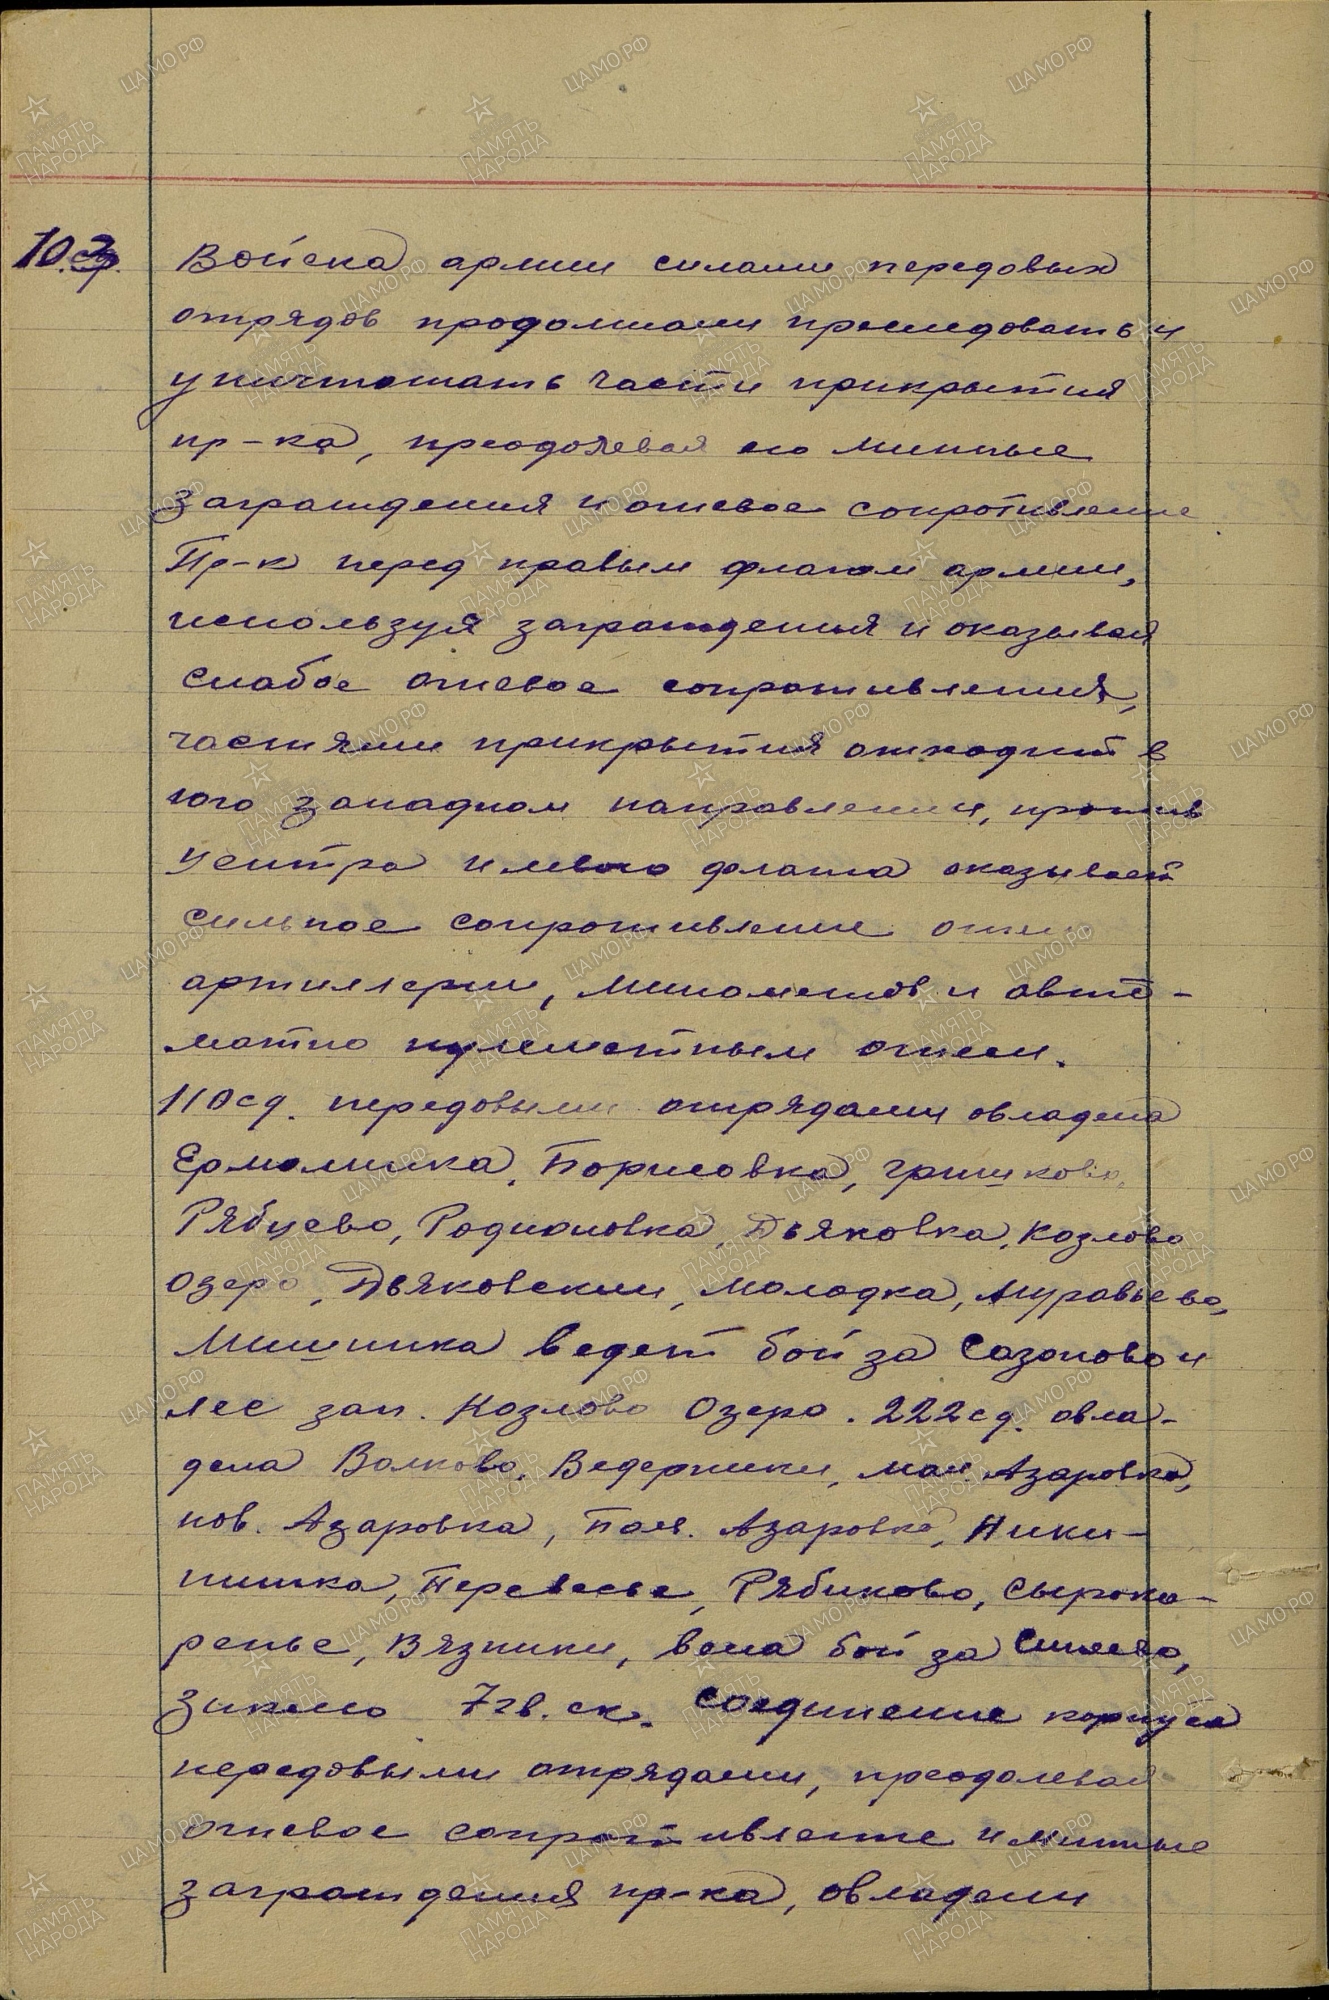 10.3.
Войска армии силами передовых
отрядов продолжали преследовать и
уничтожать части прикрытия
пр-ка, преодолевая его минные
заграждения и огневое сопротивление
Пр-к перед правым флагом армии,
используя заграждения и оказывая
слабое огневое сопротивления,
частями прикрытия отходит в
юго западном направлении, против
центра и левого фланга оказывает
сильное сопротивление огнем
артиллерии, минометов и авто-
матно пулеметным огнем.
110 сд. передовыми отрядами овладела
Ермолинка, Борисовка, Гришково,
Рябцево, Родионовка, Дьяковка, Козлово
Озеро, Дьяковский, Молодка, Муравьево,
Мишинка ведет бой за Сазоново и
лес зап. Козлово Озеро. 222 сд. овла-
дела Волково, Ведерники, мал. Азаровка,
нов. Азаровка, Азаровка, Ники-
тинка, Перевесье, Рябиково, Сыроко-
ренье, Вязники, вела бой за
7 гв. ск. Соединение корпуса
передовыми отрядами, преодолевая
огневое сопротивление и минные
заграждения пр-ка, овладели
ЦАМО.РФ
ПАМЯТЬ НАРОДА